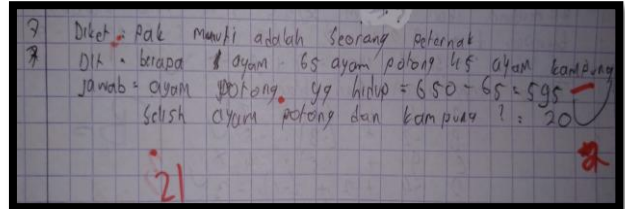 7 Diket : Pak Munuti adalah seorang peternak
Dit : berapa ayam 65 ayam potong 45 ayam kampung
Jawab = ayam potong yg hidup = 650 - 65 = 595
Selish ayam potong dan kampung ? : 20
2
21